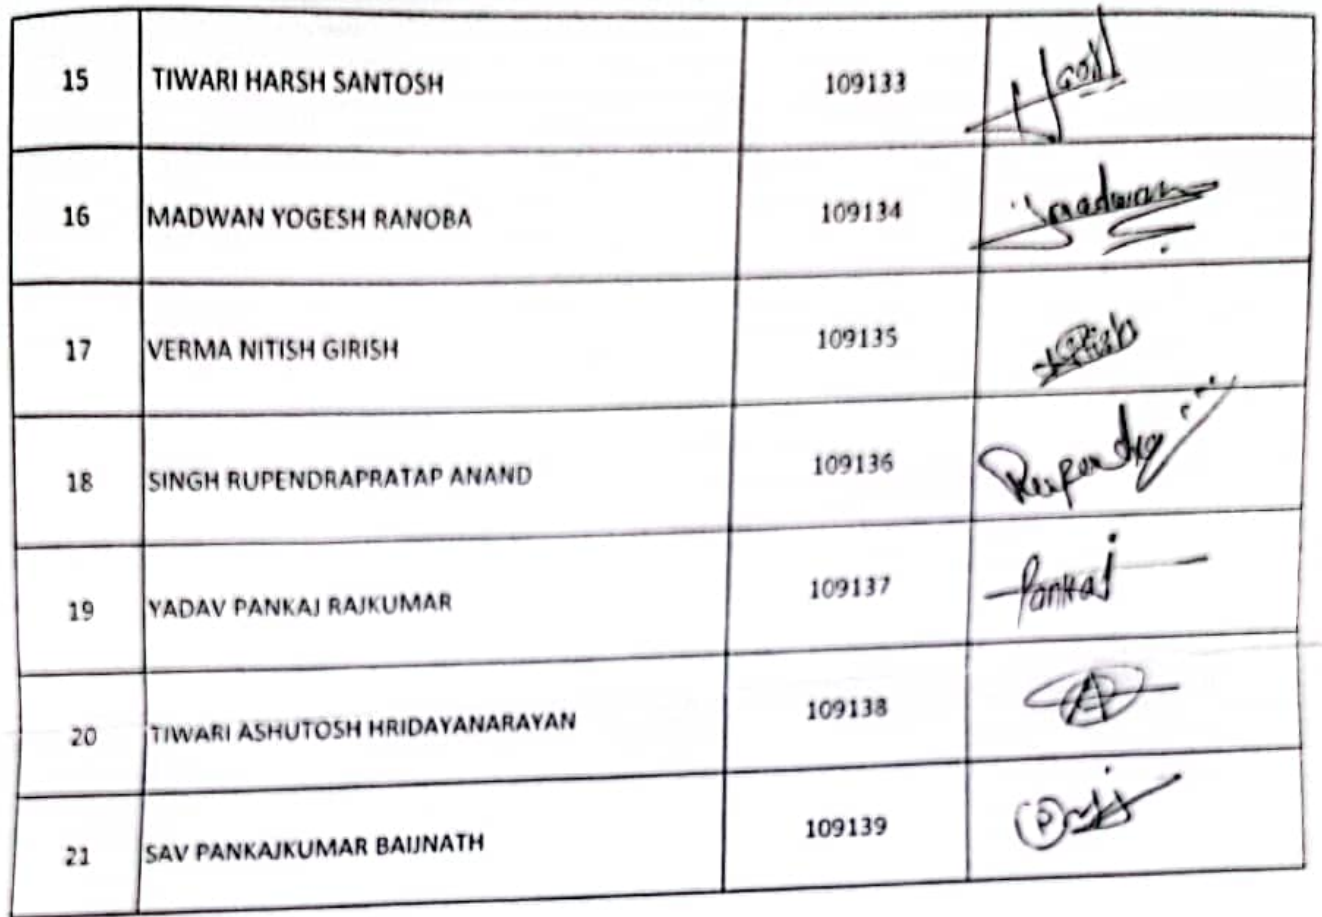 15 TIWARI HARSH SANTOSH 109133 Harsh
16 MADWAN YOGESH RANOBA 109134 Ymadwan
17 VERMA NITISH GIRISH 109135
18 SINGH RUPENDRAPRATAP ANAND 109136 Rupendra
19 YADAV PANKAJ RAJKUMAR 109137 Pankaj
20 TIWARI ASHUTOSH HRIDAYANARAYAN 109138
21 SAV PANKAJKUMAR BAIJNATH 109139